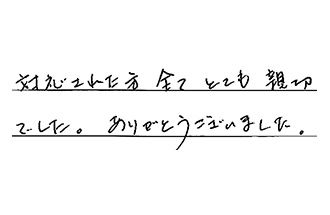 対応された方 全て とても 親切
でした。ありがとうございました。